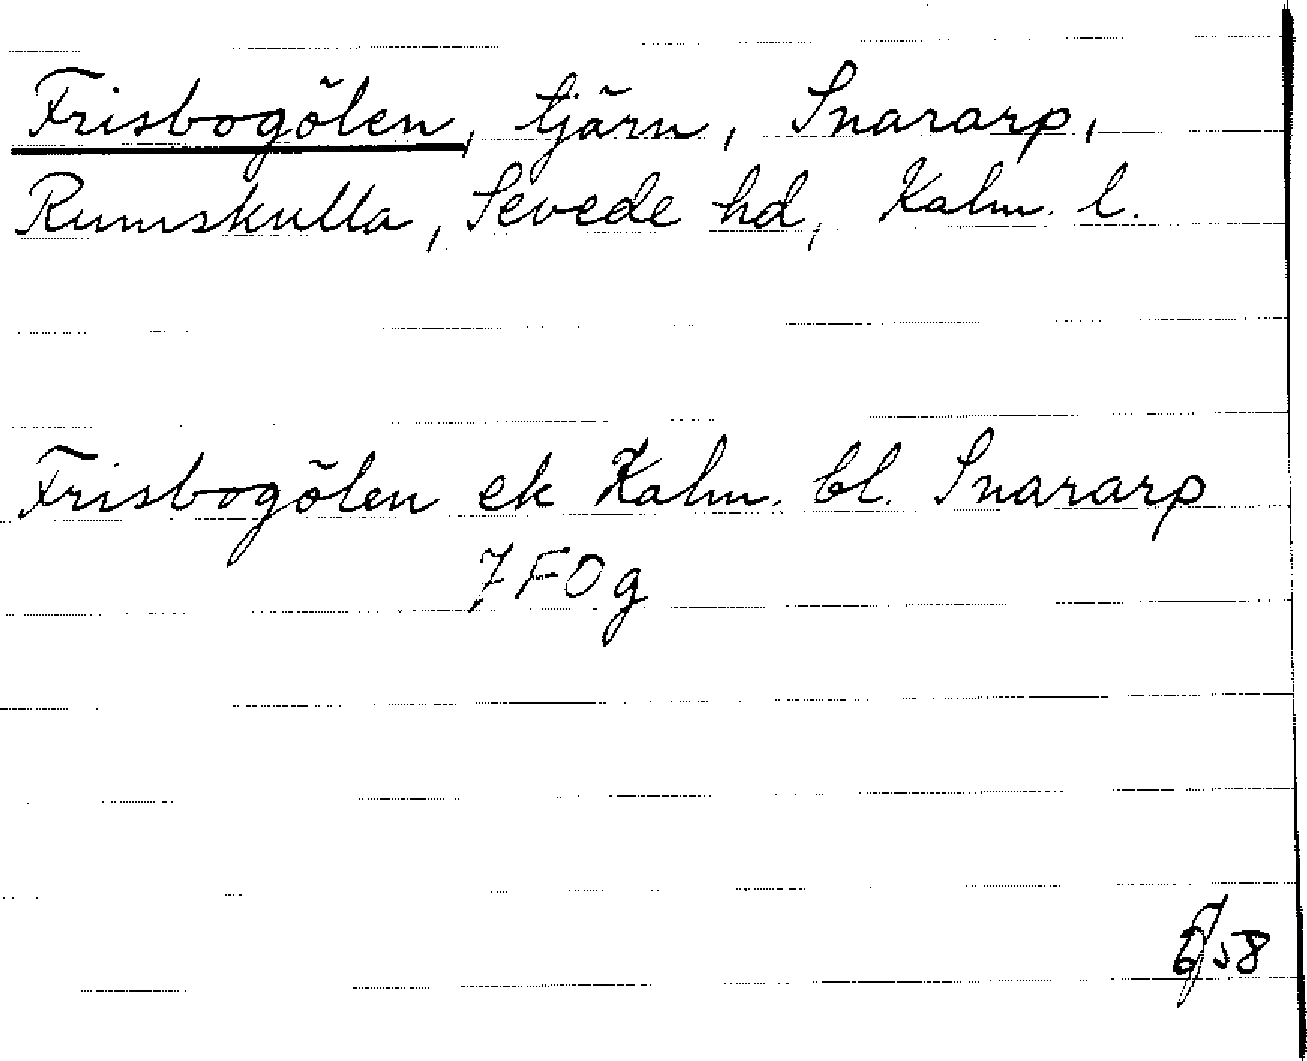 Frisbogölen, tjärn, Snararp,
Rumskulla, Sevede hd, Kalm. l.
Frisbogölen ek Kalm. bl. Snararp
7F0g
58